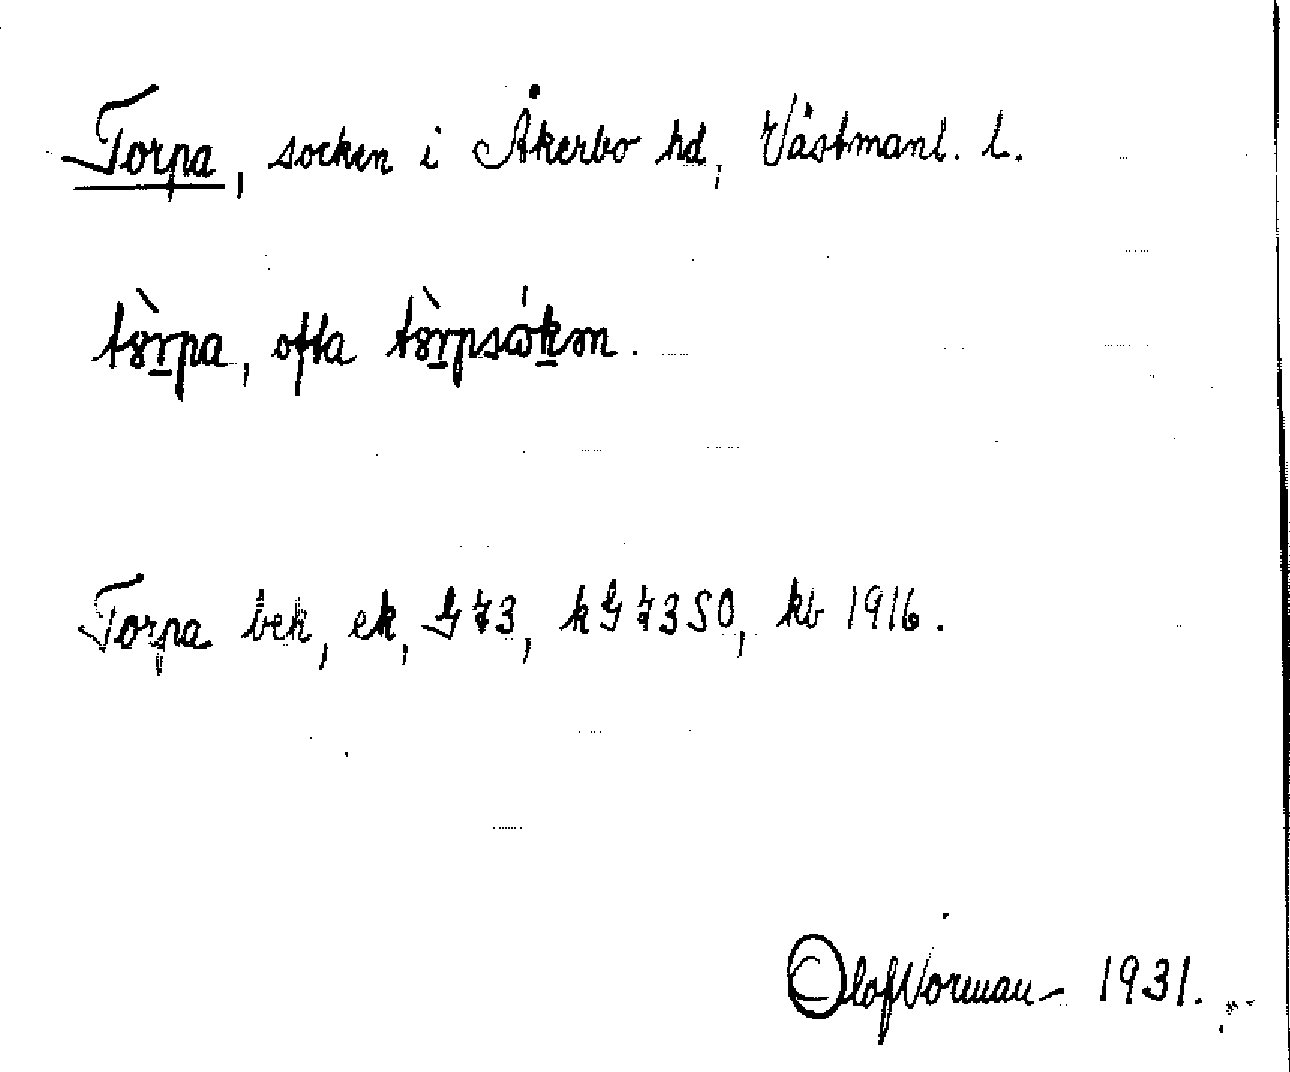 Torpa, socken i Åkerbo hd, Västmanl. l.
tòrpa, ofta tòrpsókən.
Torpa bek, ek, G 73, k G 73 SO, kb 1916.
Olof Norman 1931.